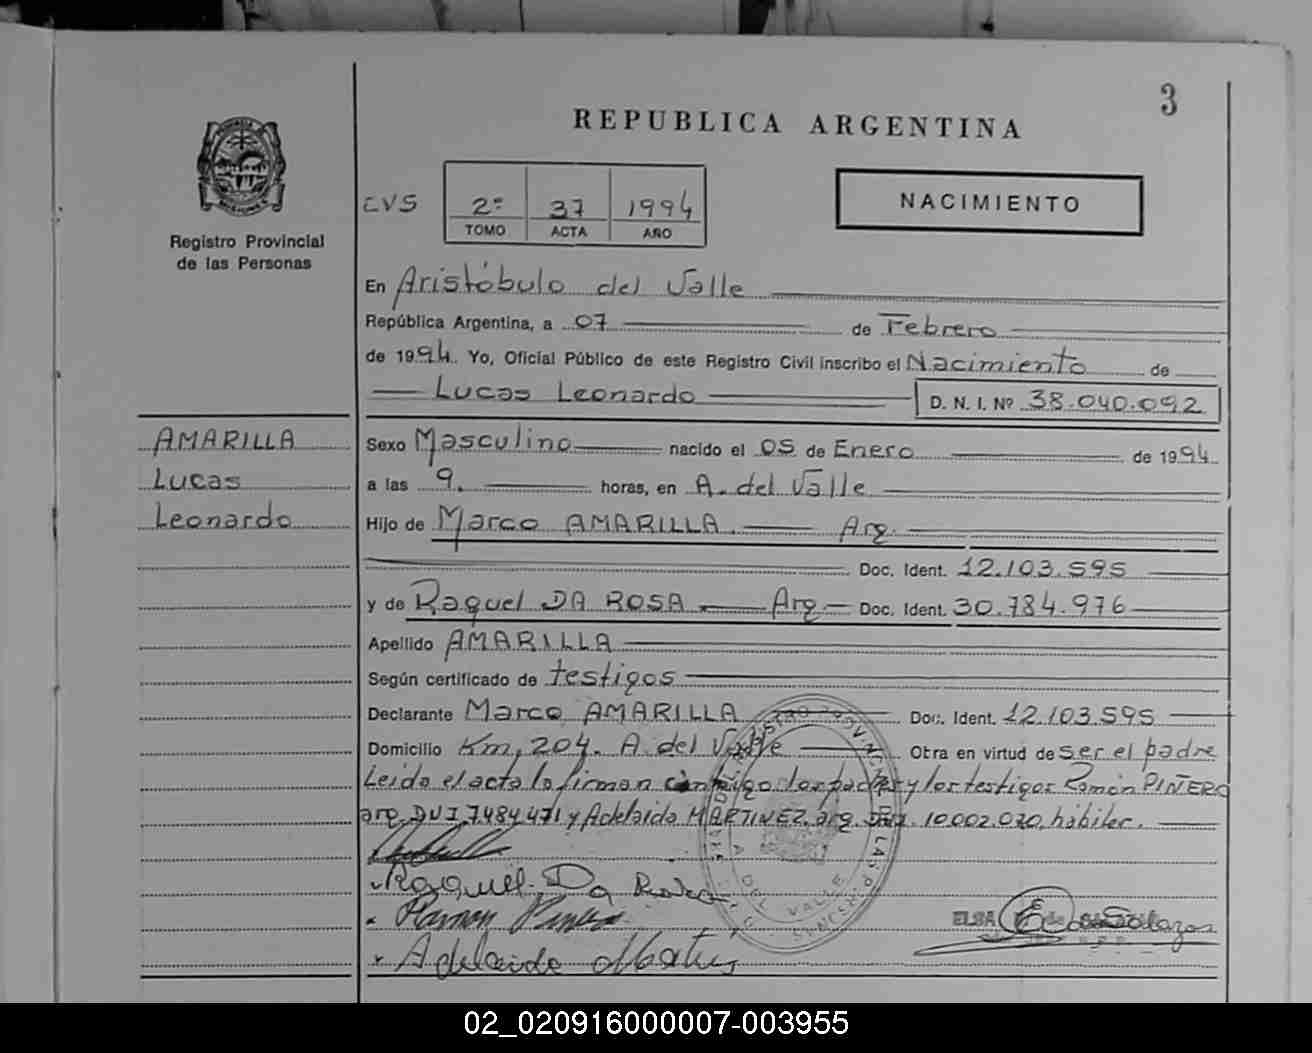 3
REPUBLICA ARGENTINA
NACIMIENTO
CVS 2º 37 1994
TOMO ACTA AÑO
Registro Provincial
de las Personas
En Aristóbulo del Valle
República Argentina, a 07 de Febrero
de 1994. Yo, Oficial Público de este Registro Civil inscribo el Nacimiento de
Lucas Leonardo D. N. I. Nº 38.040.092
AMARILLA
Lucas
Leonardo
Sexo Masculino nacido el 05 de Enero de 1994
a las 9. horas, en A. del Valle
Hijo de Marco AMARILLA. Arg.
Doc. Ident. 12.103.595
y de Raquel DA ROSA Arg Doc. Ident. 30.784.976
Apellido AMARILLA
Según certificado de testigos
Declarante Marco AMARILLA Doc. Ident. 12.103.595
Domicilio Km, 204. A. del Valle Otra en virtud de ser el padre
Leida el acta la firman conmigo los padres y los testigos Ramón PIÑERO
arg. DNI 7.484.471 y Adelaida MARTINEZ, arg. 10.002.020, hábiles.
Raquel Da Rosa
Ramon
Adelaida
ELSA
A. DEL VALLE
02_020916000007-003955